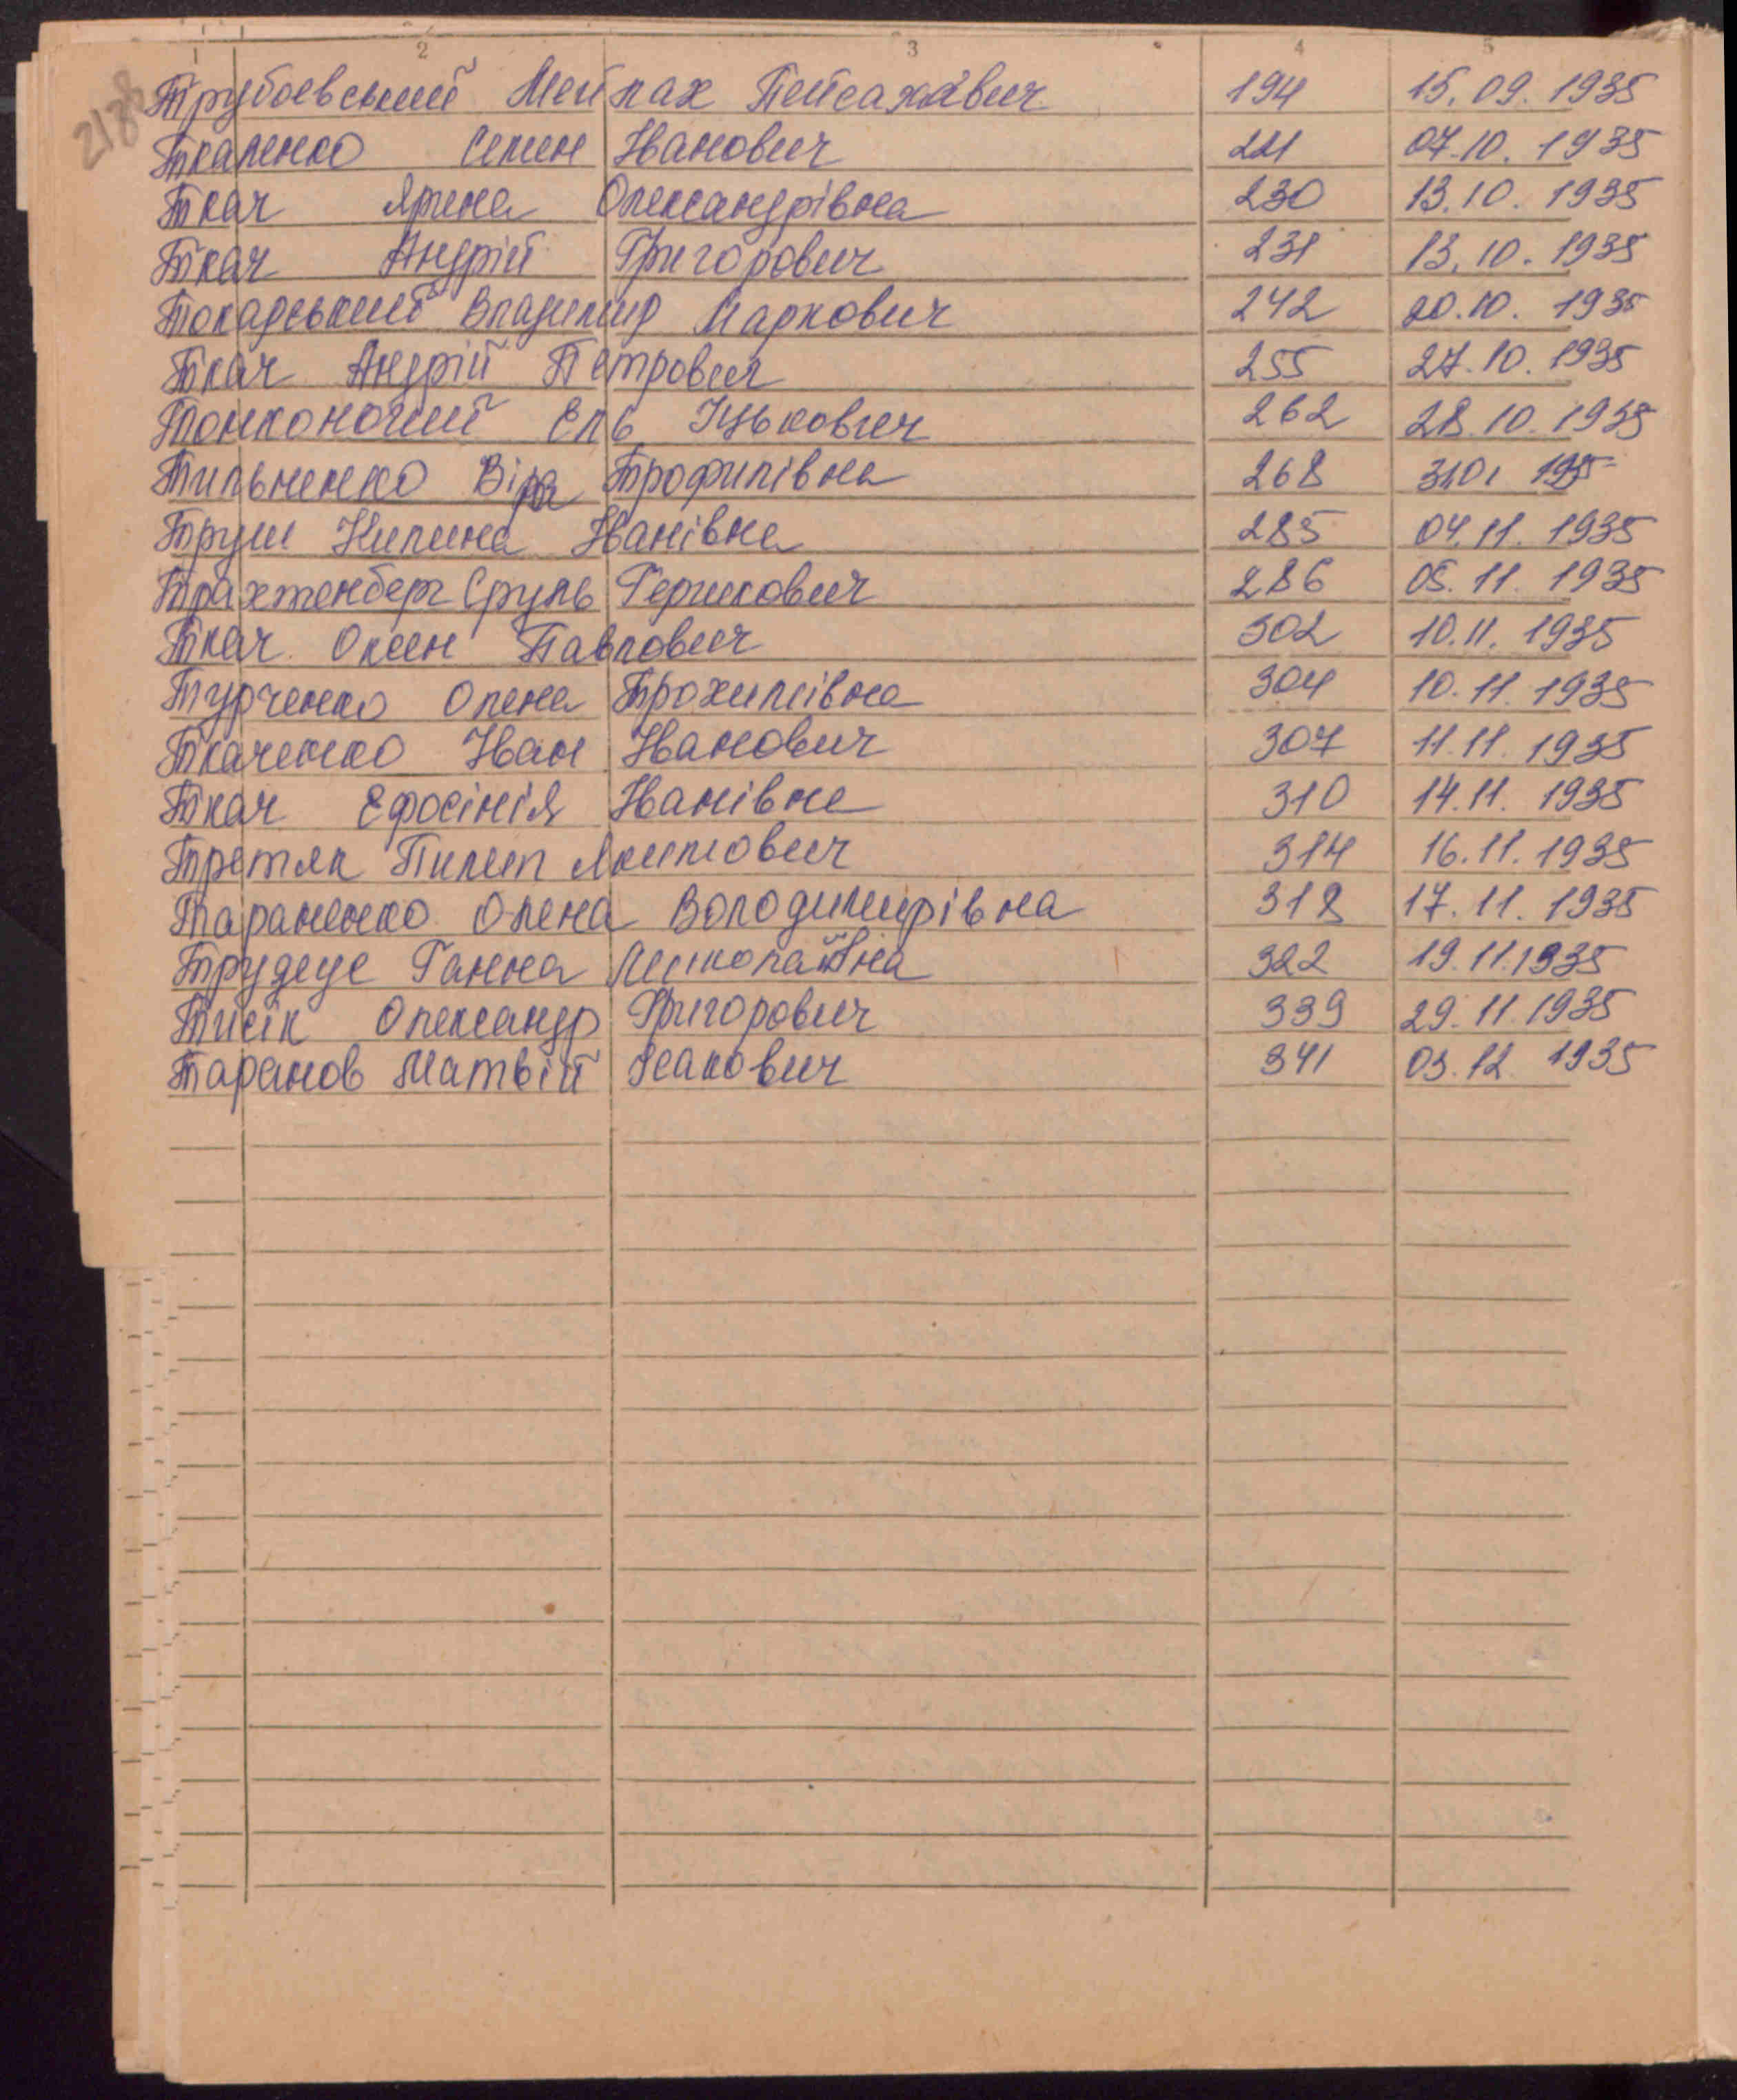 1 2 3 4 5
Трубоевський Мейлах Пейсахович 194 15.09.1935
Ткаленко Семен Іванович 221 07.10.1935
Ткач Ярина Олександрівна 230 13.10.1935
Ткач Андрій Григорович 231 13.10.1935
Токарський Владимир Маркович 242 20.10.1935
Ткач Андрій Петрович 255 27.10.1935
Тонконогий Ель Іцькович 262 28.10.1935
Тильненко Віра Трофимівна 268
Труш Килина Іванівна 285 04.11.1935
Трахтенберг Сруль Гершкович 286 05.11.1935
Ткач Оксен Павлович 302 10.11.1935
Турченко Олена Трохимівна 304 10.11.1935
Ткаченко Іван Іванович 307 11.11.1935
Ткач Ефосінія Іванівна 310 14.11.1935
Третяк Пилип Якимович 314 16.11.1935
Тараненко Олена Володимирівна 318 17.11.1935
Ганна Миколаївна 322 19.11.1935
Тисік Олександр Григорович 339 29.11.1935
Таранов Матвій Ісакович 341 03.12.1935